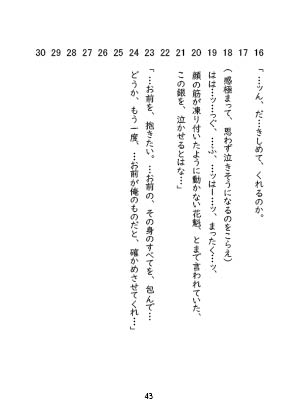 16 「…ッん、だ…きしめて、くれるのか。
17
18 （感極まって、思わず泣きそうになるのをこらえ）
19 はは…ッ…っぐ、…ふ、…ッはー…ッ、まったく…ッ、
20 顔の筋が凍り付いたように動かない花魁、とまで言われていた、
21 この銀を、泣かせるとはな…」
22
23 「…お前を、抱きたい。…お前の、その身のすべてを、包んで…
24 どうか、もう一度、…お前が俺のものだと、確かめさせてくれ…」
25
26
27
28
29
30
43